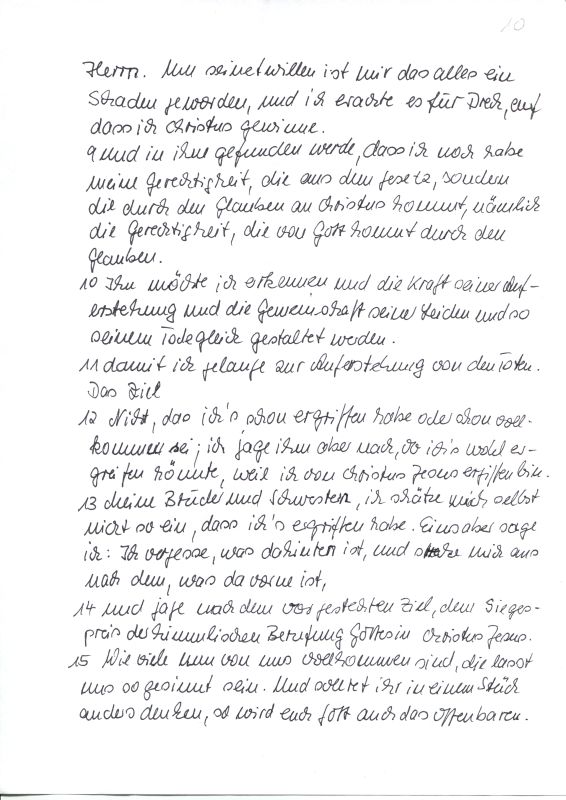 10
Herrn. Um seinetwillen ist mir das alles ein
Schaden geworden, und ich erachte es für Dreck, auf
dass ich Christus gewinne.
9 und in ihm gefunden werde, dass ich nich habe
meine Gerechtigkeit, die aus dem Gesetz, sondern
die durch den Glauben an Christus kommt, nämlich
die Gerechtigkeit, die von Gott kommt durch den
Glauben.
10 Ihn möchte ich erkennen und die Kraft seiner Auf-
erstehung und die Gemeinschaft seiner Leiden und so
seinem Tode gleich gestaltet werden.
11 damit ich gelange zur Auferstehung von den Toten.
Das Ziel
12 Nicht, das ich's schon ergriffen habe oder schon voll-
kommen sei; ich jage ihm aber nach, ob ich's wohl er-
greifen könnte, weil ich von Christus Jesus ergiffen bin.
13 Meine Brüder und Schwestern, ich schätze mich selbst
nicht so ein, dass ich's ergriffen habe. Eins aber sage
ich: Ich vergesse, was dahinten ist, und strecke mich aus
nach dem, was da vorne ist,
14 und jage nach dem vorgesteckten Ziel, dem Sieges-
preis der himmlischen Berufung Gottes in Christus Jesus.
15 Wie viele nun von uns vollkommen sind, die lasst
uns so gesinnt sein. Und solltet ihr in einem Stück
anders denken, so wird euch Gott auch das offenbaren.